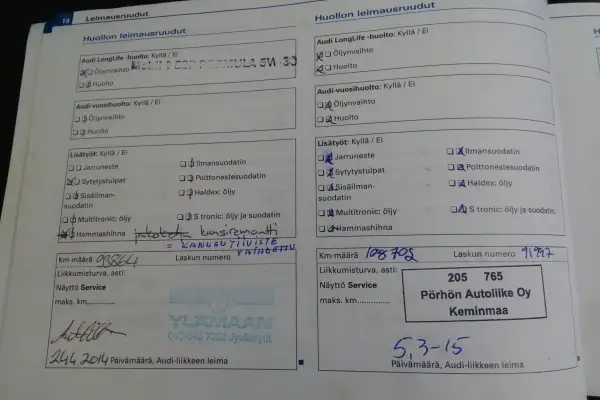 16 Leimausruudut
Huollon leimausruudut
Audi LongLife -huolto: Kyllä / Ei
Öljynvaihto
Huolto
Audi-vuosihuolto: Kyllä / Ei
Öljynvaihto
Huolto
Lisätyöt: Kyllä / Ei
Jarruneste
Ilmansuodatin
Sytytystulpat
Polttonestesuodatin
Sisäilman-
suodatin
Haldex: öljy
Multitronic: öljy
S tronic: öljy ja suodatin
Hammashihna jakoketju kansiremontti
= KANNEN TIIVISTE
VAIHDETTU
Km-määrä 93864 Laskun numero
Liikkumisturva, asti:
Näyttö Service
maks. km
Jyväskylä
24.4.2014 Päivämäärä, Audi-liikkeen leima
Huollon leimausruudut
Audi LongLife -huolto: Kyllä / Ei
Öljynvaihto
Huolto
Audi-vuosihuolto: Kyllä / Ei
Öljynvaihto
Huolto
Lisätyöt: Kyllä / Ei
Jarruneste
Ilmansuodatin
Sytytystulpat
Polttonestesuodatin
Sisäilman-
suodatin
Haldex: öljy
Multitronic: öljy
S tronic: öljy ja suodatin
Hammashihna
Km-määrä 108702 Laskun numero 91997
Liikkumisturva, asti:
Näyttö Service
maks. km
205 765
Pörhön Autoliike Oy
Keminmaa
5,3-15
Päivämäärä, Audi-liikkeen leima